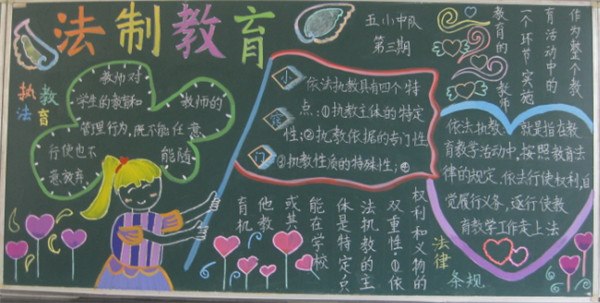 法制教育
五小中队
第三期
执法
教育
教师对
学生的教育和
教师的
管理行为，既不能任意
行使也不
能随
意放弃
小
窍
门
依法执教具有四个特
点：①执教主体的特定
性；②执教依据的专门性
③执教性质的特殊性；④
权利和义物的
双重性。①依
法执教的主
体是特定只
能在学校
或其
他教
育机
作为整个教
育活动中的
一个环节实施
教育的教师
依法执教，就是指在教
育教学活动中，按照教育法
律的规定，依法行使权利，自
觉履行义务，逐行使教
育教学工作走上去
法律
条规